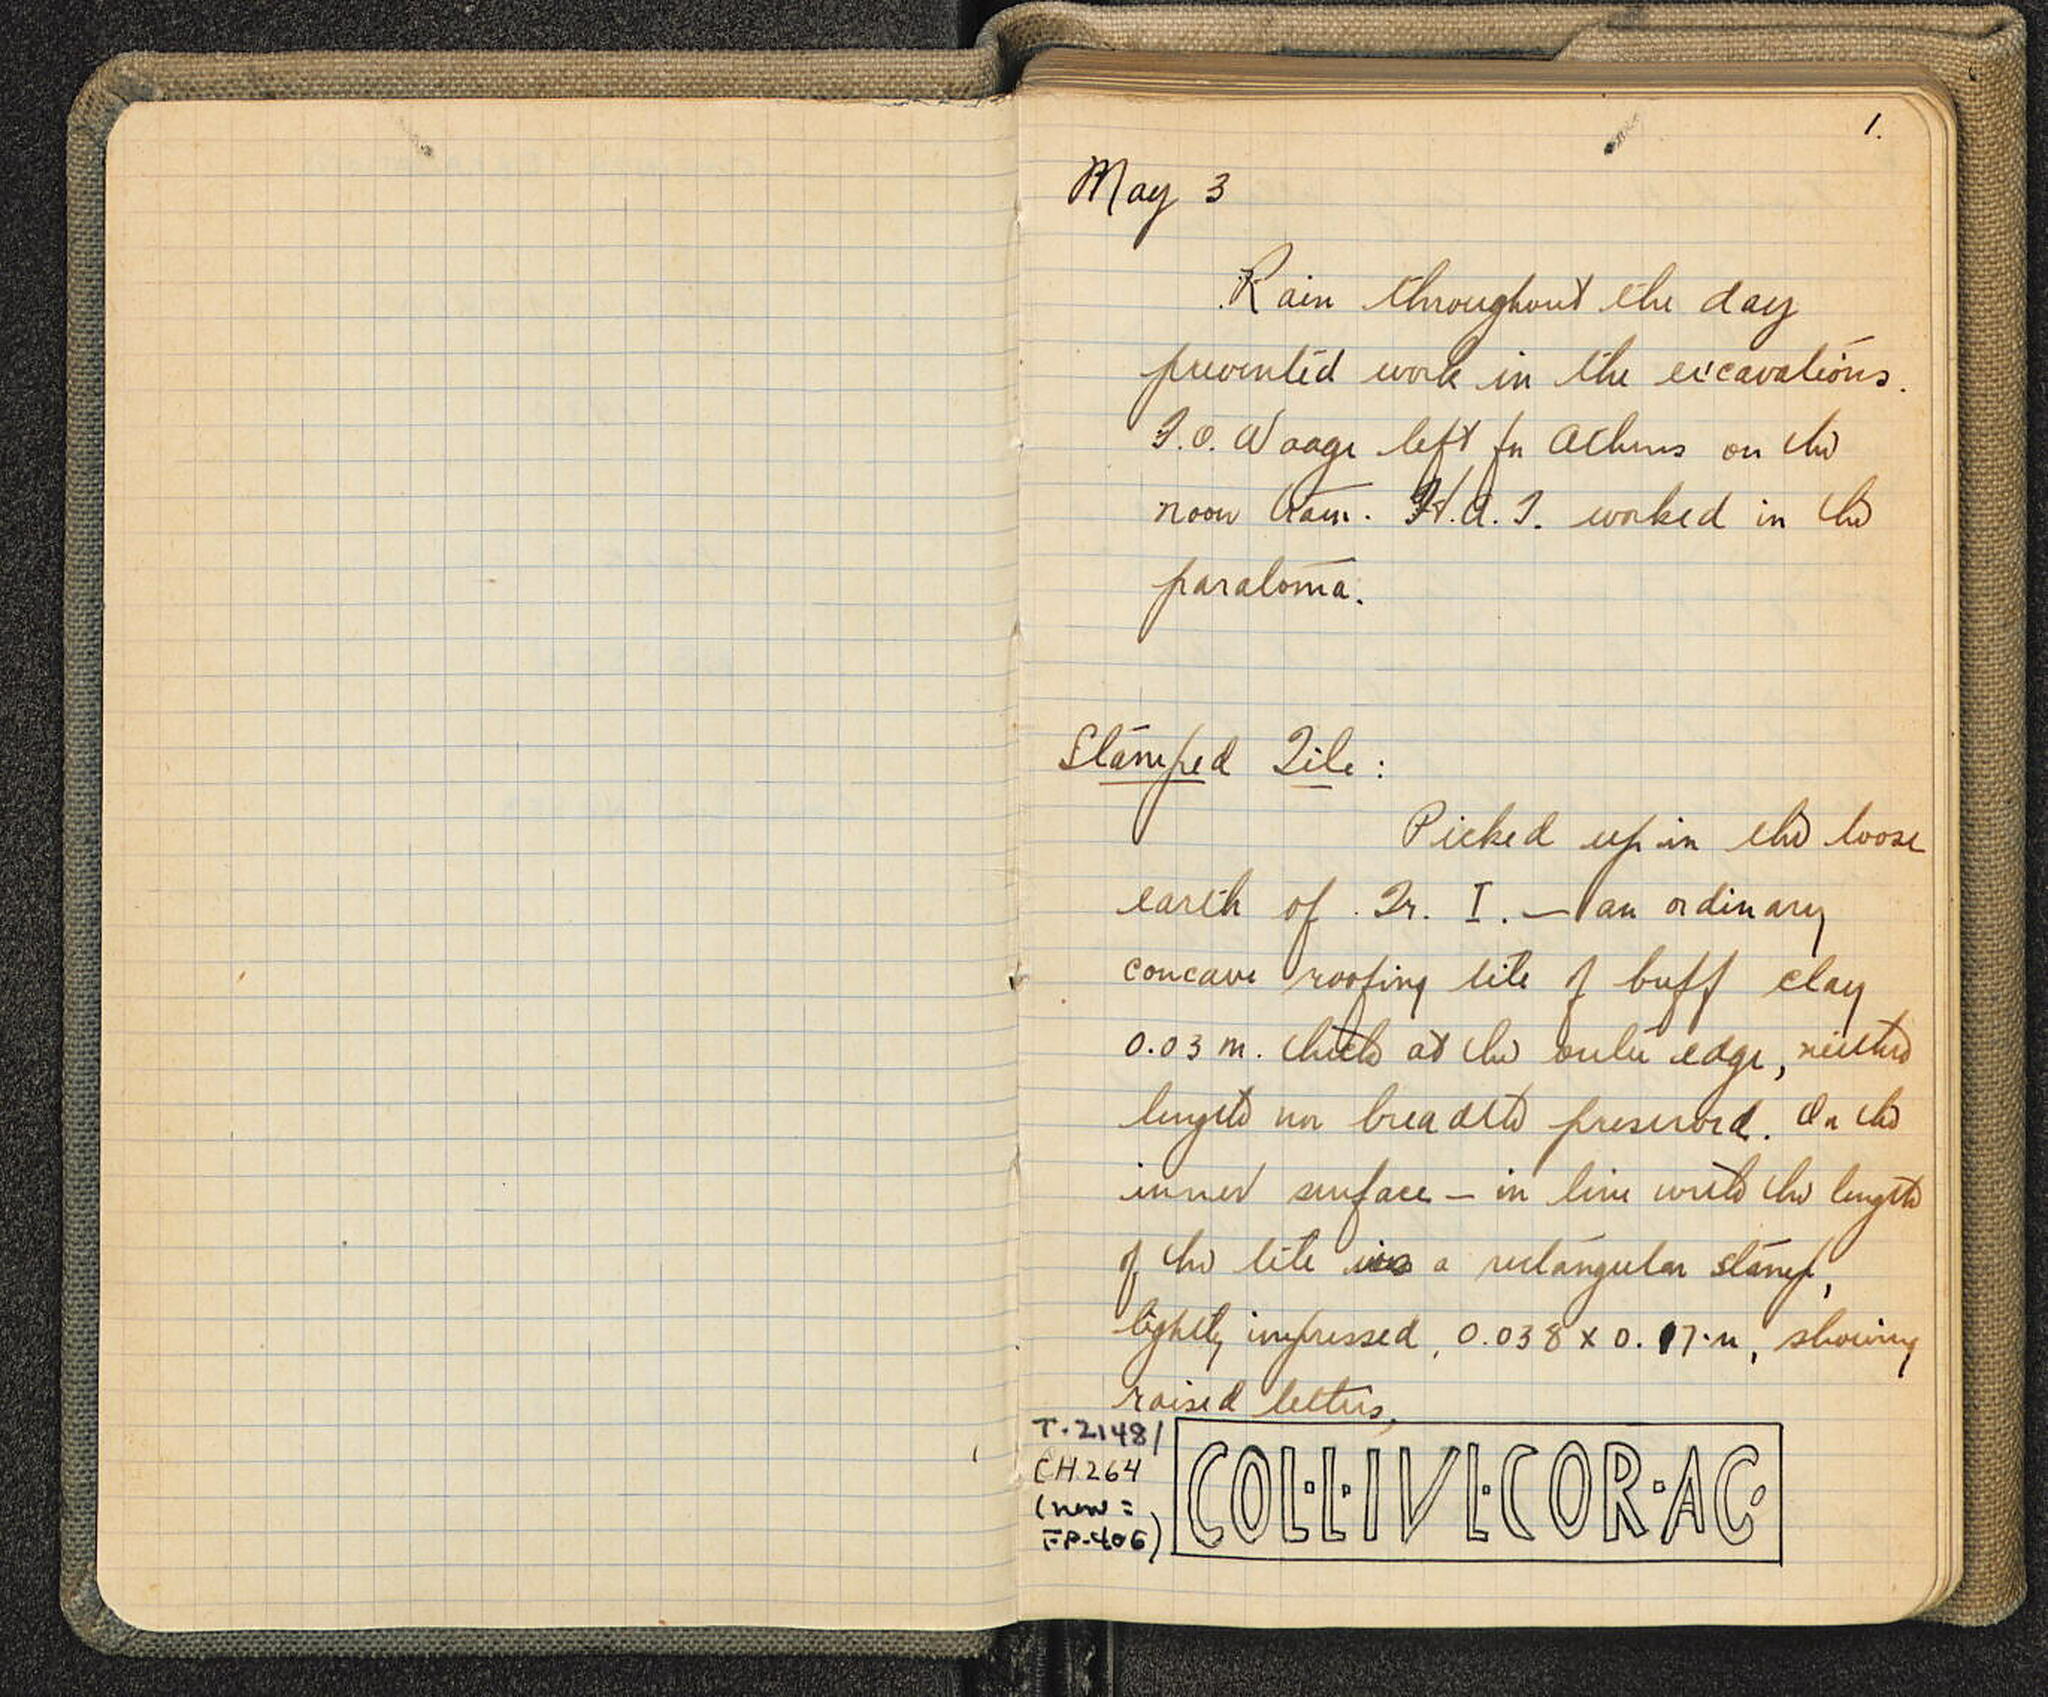 1.
May 3
Rain throughout the day
prevented work in the excavations.
F.O. Waage left for Athens on the
noon train. H.A.T. worked in the
paraloma.
Stamped Tile:
Picked up in the loose
earth of Tr. I. — an ordinary
concave roofing tile of buff clay
0.03 m. thick at the outer edge, neither
length nor breadth preserved. On the
inner surface — in line with the length
of the tile is a rectangular stamp,
lightly impressed, 0.038 x 0.17 m, showing
raised letters,
T.2148/
CH.264
(new =
FP.406)
COL·L·IVL·COR·AC·